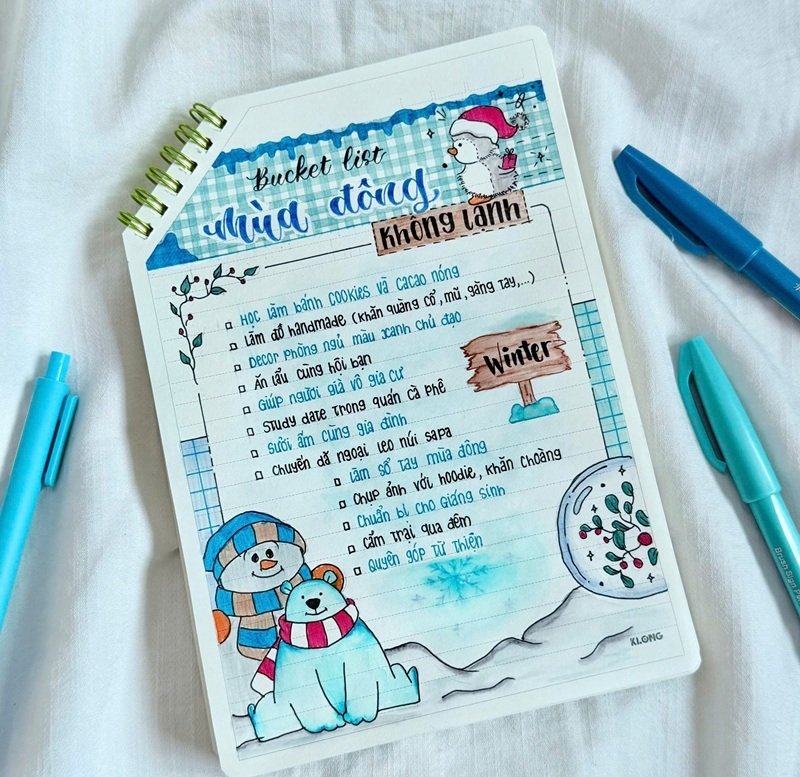 Bucket list
mùa đông
Không lạnh
Học làm bánh cookies và cacao nóng
Làm đồ handmade (khăn quàng cổ, mũ, găng tay,...)
Decor phòng ngủ màu xanh chủ đạo
Ăn lẩu cùng hội bạn
Giúp người già vô gia cư
Study date trong quán cà phê
Sưởi ấm cùng gia đình
Chuyến dã ngoại leo núi sapa
Winter
Làm sổ tay mùa đông
Chụp ảnh với hoodie, khăn choàng
Chuẩn bị cho Giáng sinh
Cắm trại qua đêm
Quyên góp từ thiện
KLONG
Brush Sign Pe